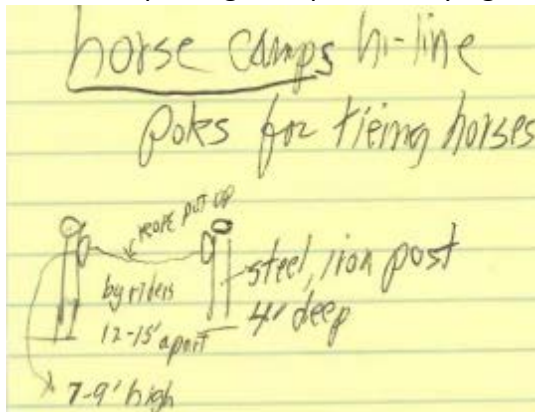 horse camps hi-line
Poles for tieing horses
rope put up
by riders
12-15' apart
steel, iron post
4' deep
7-9' high